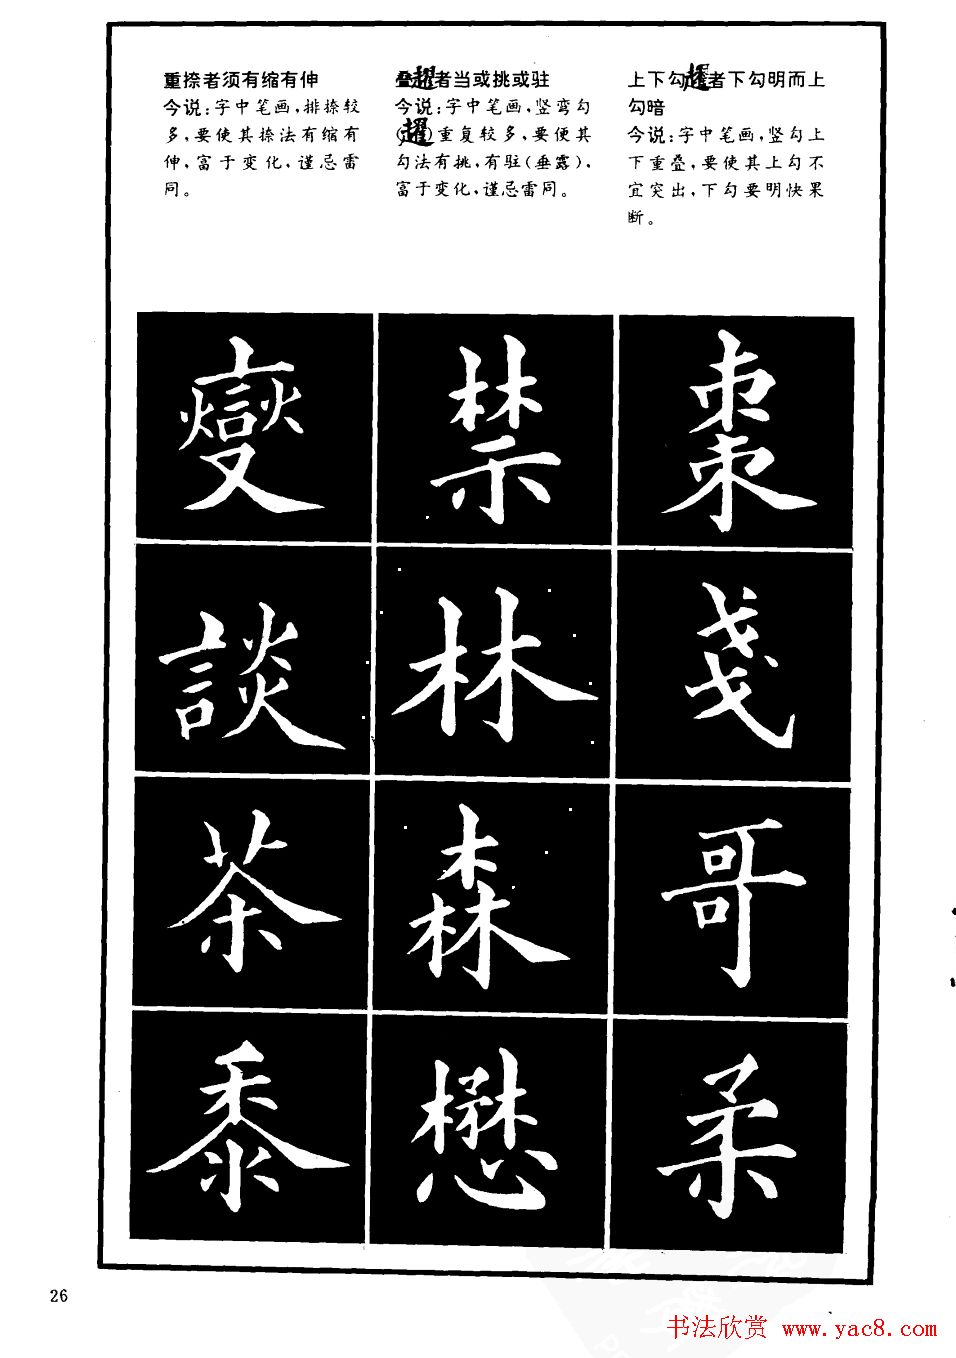 重捺者须有缩有伸
今说:字中笔画,排捺较
多,要使其捺法有缩有
伸,富于变化,谨忌雷
同。
叠趯者当或挑或驻
今说:字中笔画,竖弯勾
(趯)重复较多,要便其
勾法有挑,有驻(垂露),
富于变化,谨忌雷同。
上下勾趯者下勾明而上
勾暗
今说:字中笔画,竖勾上
下重叠,要使其上勾不
宜突出,下勾要明快果
断。
燮 禁 棗
談 林 戔
茶 森 哥
黍 懋 柔
26
书法欣赏 www.yac8.com